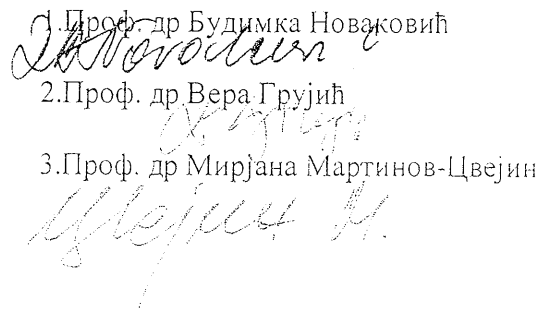 1.Проф. др Будимка Новаковић
2.Проф. др Вера Грујић
3.Проф. др Мирјана Мартинов-Цвејин
Цвејин М.